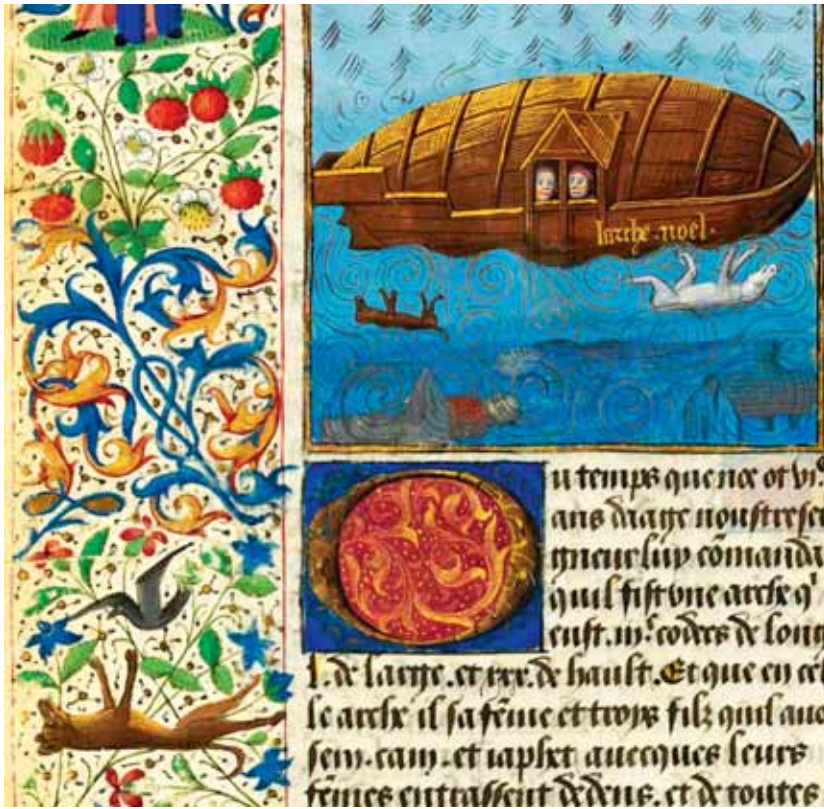 larche . noel .
u temps que noe ot vi.c
ans daage noustre sei
gneur luy cōmanda
quil fist vne arche q'
eust .iii.c codes de long
l. de large . et xxx. de hault . Et que en cel
le arche il sa fēme et troys filz quil auo
sem . cam . et iaphet auecques leurs
fēmes entrassent dedens . et de toutes